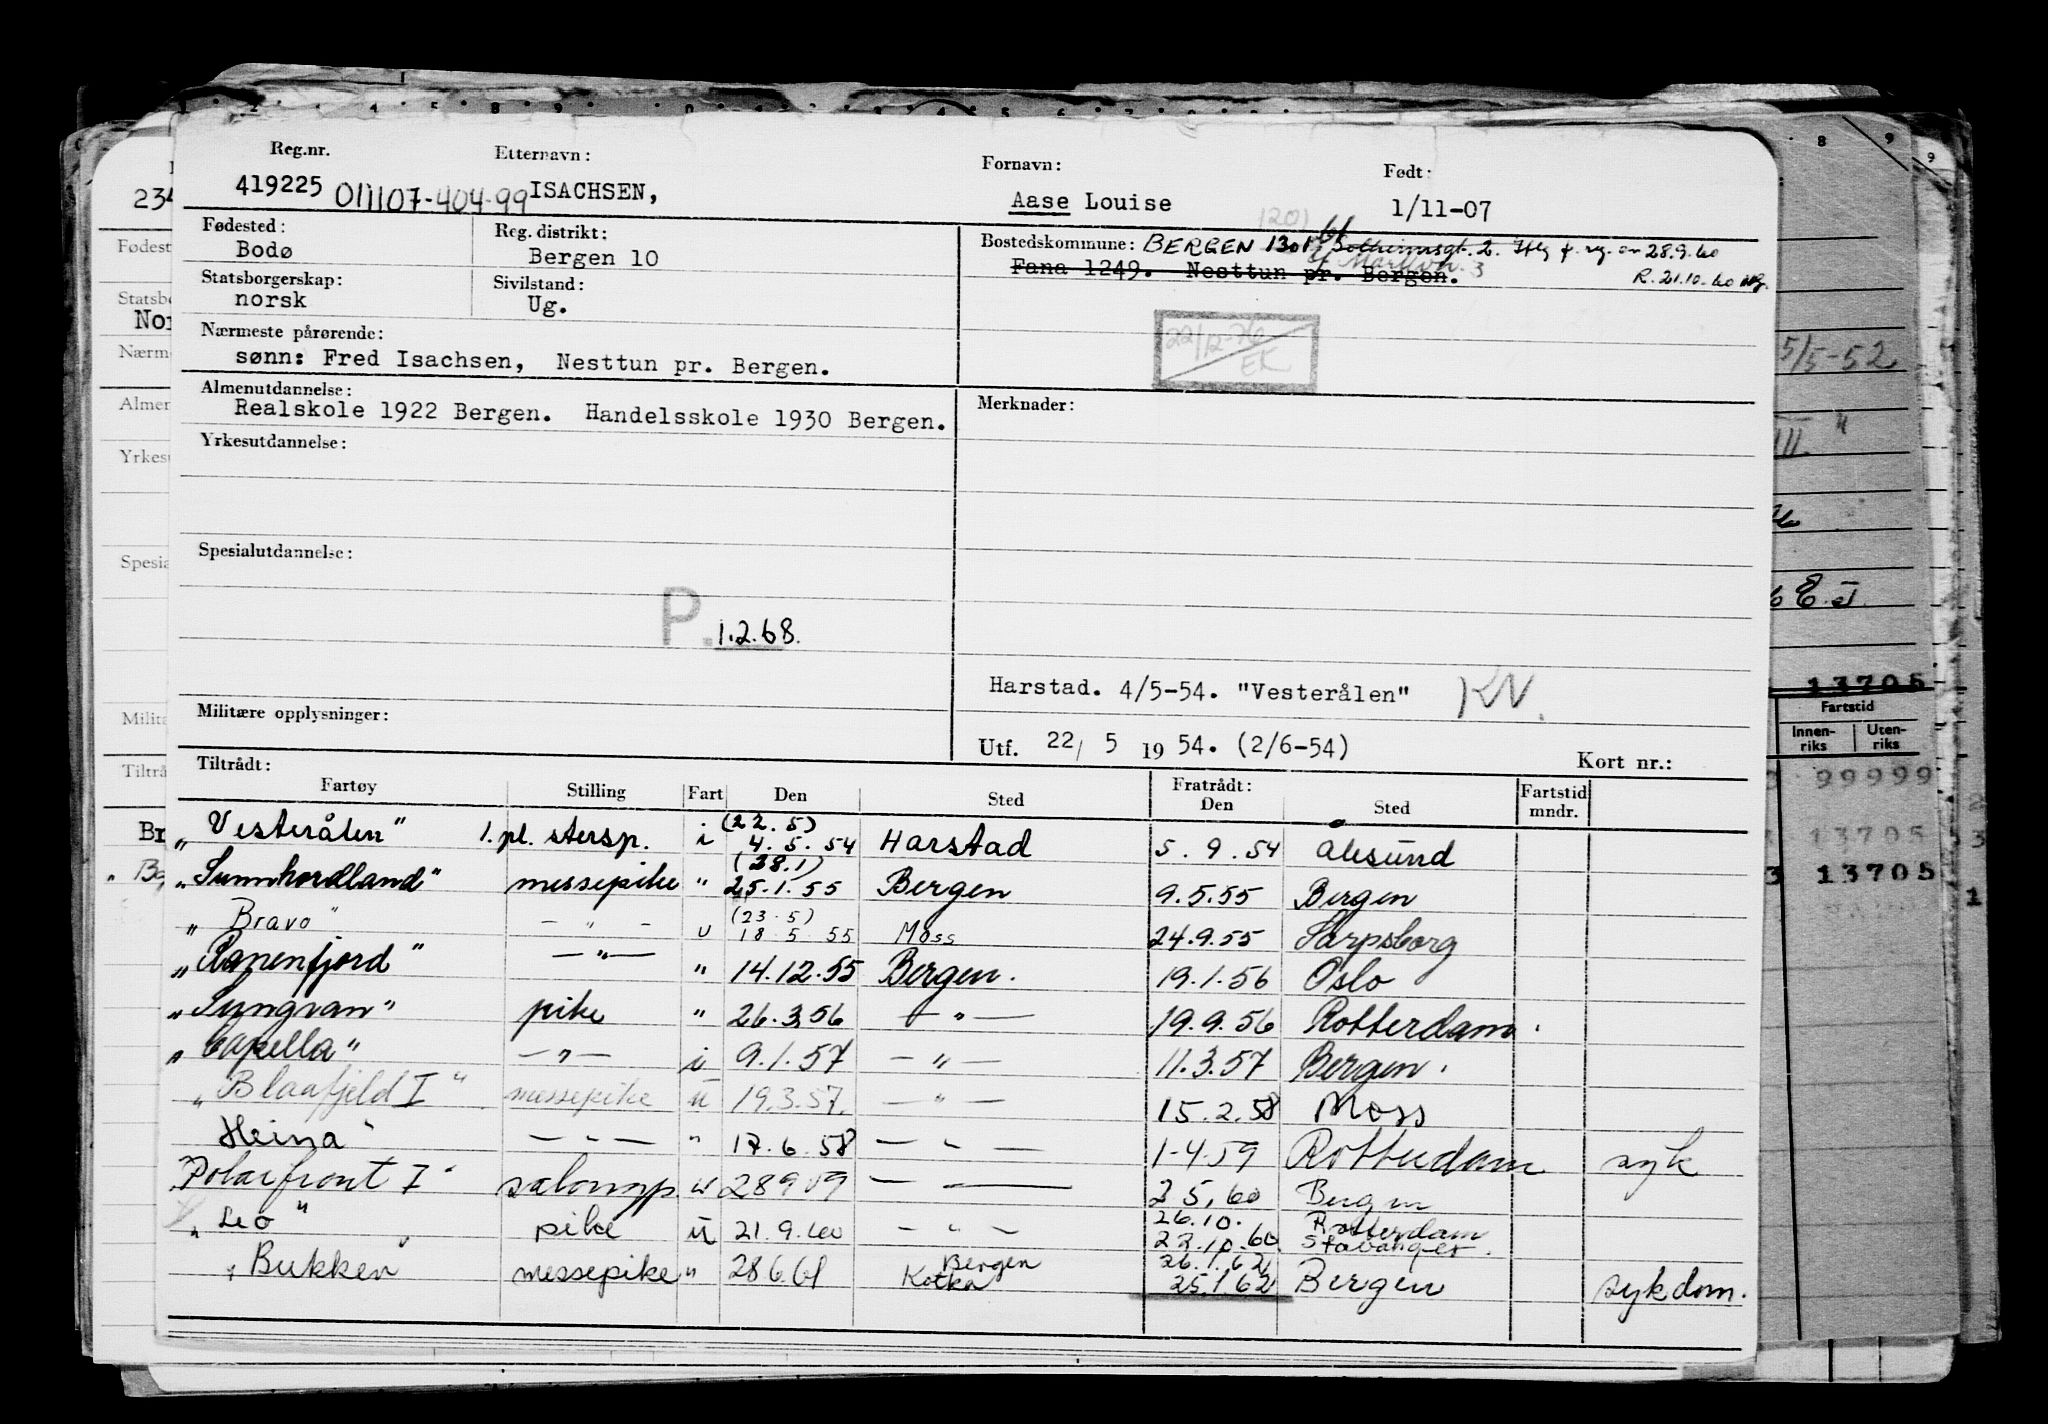 Reg.nr. Etternavn: Fornavn: Født:
419225 011107-404-99 ISACHSEN, Aase Louise 1/11-07
Fødested: Reg. distrikt: Bostedskommune: BERGEN 1301 Solheimsgt. 2. 28.9.60
Bodø Bergen 10 Fana 1249. Nesttun pr. Bergen. R. 21.10.60
Statsborgerskap: Sivilstand:
norsk Ug.
22/12-76
EK
Nærmeste pårørende:
sønn: Fred Isachsen, Nesttun pr. Bergen.
Almenutdannelse: Merknader:
Realskole 1922 Bergen. Handelsskole 1930 Bergen.
Yrkesutdannelse:
Spesialutdannelse:
P. 1.2.68.
Harstad. 4/5-54. "Vesterålen" KN.
Militære opplysninger:
Utf. 22/ 5 19 54. (2/6-54) Kort nr.:
Tiltrådt: Fratrådt:
Fartøy Stilling Fart Den Sted Den Sted Fartstid mndr.
(22.5)
„Vesterålen" 1. pl. stersp. i 4.5.54 Harstad 5.9.54 Ålesund
(28.1)
„Sunnhordland" messepike " 25.1.55 Bergen 9.5.55 Bergen
(23.5)
„Bravo" — " — u 18.5.55 Moss 24.9.55 Sarpsborg
„Ranenfjord" — " — " 14.12.55 Bergen. 19.1.56 Oslo
„Sungvan" pike " 26.3.56 — " — 19.9.56 Rotterdam.
„Capella" — " — i 9.1.57 — " — 11.3.57 Bergen.
„Blaafjeld I" messepike u 19.3.57. — " — 15.2.58 Moss
Heina" — " — " 17.6.58 — " — 1-4.59 Rotterdam syk
„Polarfront I" salongp. u 28 9 59 — " — 2 5.60 Bergen
26.10. Rotterdam
„Leo" pike u 21.9.60 — " — 22.10.60 Stavanger.
Bergen 26.1.62
„Bukken" messepike " 28.6.61 Kotka 25.1.62 Bergen sykdom.
5/5-52
13705
Fartstid
Innen-riks Uten-riks
99999
13705
13705